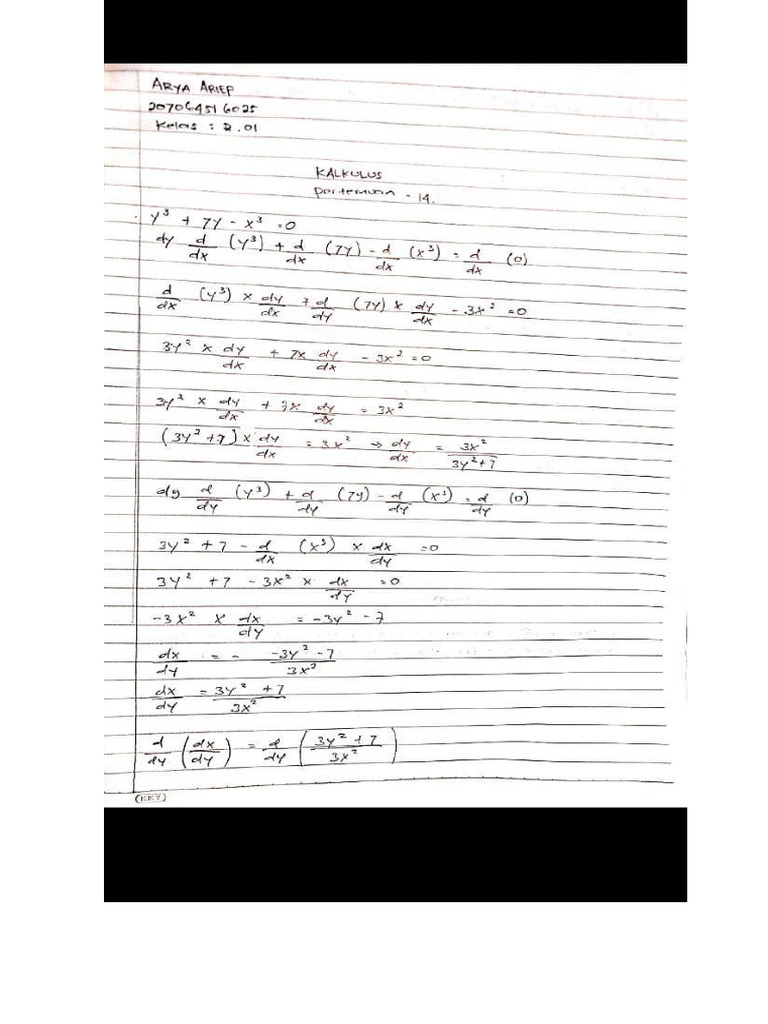 ARYA ARIEP
207064516025
Kelas : R.01
KALKULUS
pertemuan - 14.
y³ + 7y - x³ = 0
dy d/dx (y³) + d/dx (7y) - d/dx (x³) = d/dx (0)
d/dx (y³) × dy/dx + d/dy (7y) × dy/dx - 3x² = 0
3y² × dy/dx + 7x dy/dx - 3x² = 0
3y² × dy/dx + 7x dy/dx = 3x²
(3y² + 7) × dy/dx = 3x² → dy/dx = 3x²/3y²+7
dy d/dy (y³) + d/dy (7y) - d/dy (x³) = d/dy (0)
3y² + 7 - d/dx (x³) × dx/dy = 0
3y² + 7 - 3x² × dx/dy = 0
-3x² × dx/dy = -3y² - 7
dx/dy = - -3y² - 7/3x²
dx/dy = 3y² + 7/3x²
d/dy (dx/dy) = d/dy (3y² + 7/3x²)
(KKY)